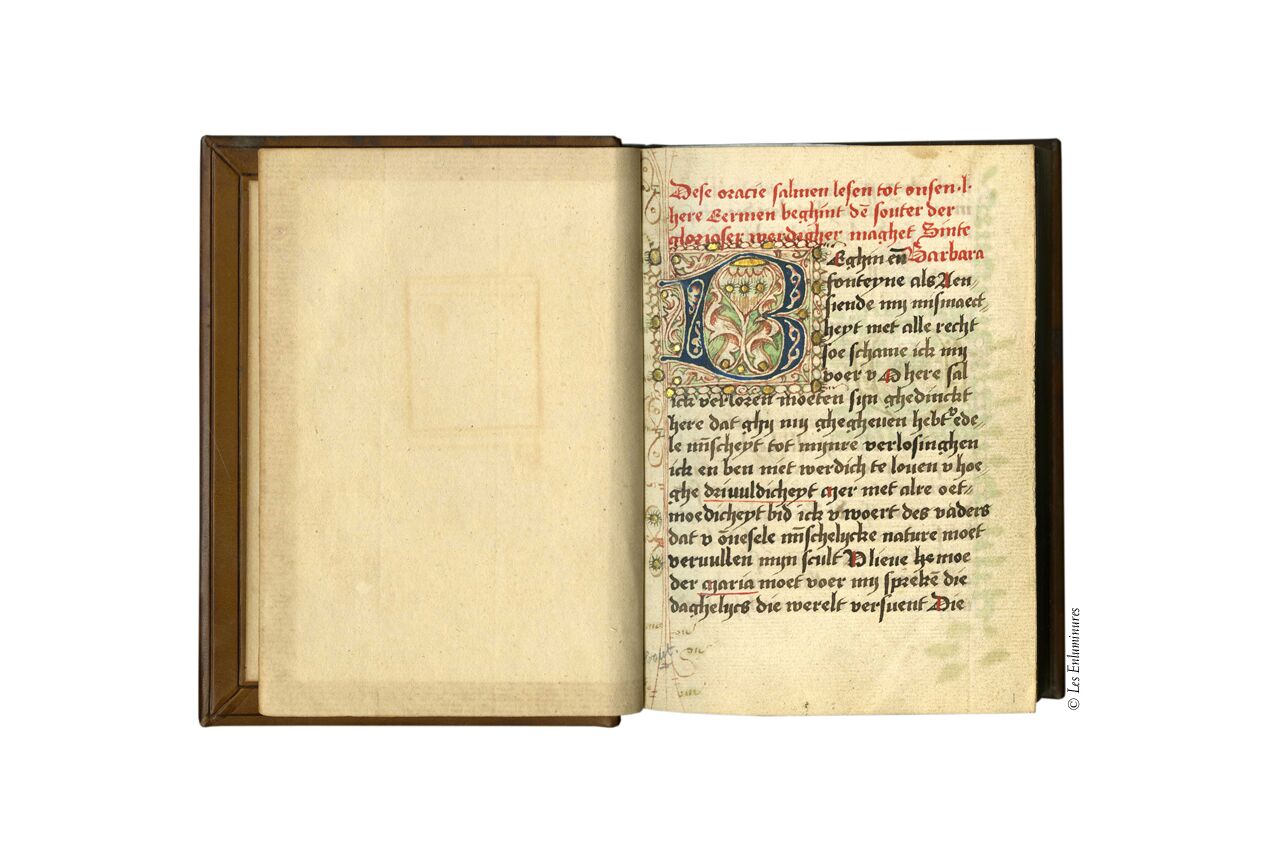 Dese oracie salmen lesen tot onsen .l.
here Eermen beghint dē souter der
glorioser werdigher maghet Sinte
Barbara
BEghin en̄
fonteyne als Aen⸗
siende my mismaect⸗
heyt met alle recht
soe schame ick my
voer v O here sal
ick verloren moeten sijn ghedinckt
here dat ghij my ghegheuen hebt v ede⸗
le m̄scheyt tot mijnre verlosinghen
ick en ben niet werdich te louen v hoe
ghe driuuldicheyt mer met alre oet⸗
moedicheyt bid ick v woert des vaders
dat v ōnesele m̄schelycke nature moet
veruullen mijn scult O lieue he moe
der maria moet voer mij sprekē die
daghelijcs die werelt versuent Die
© Les Enluminures